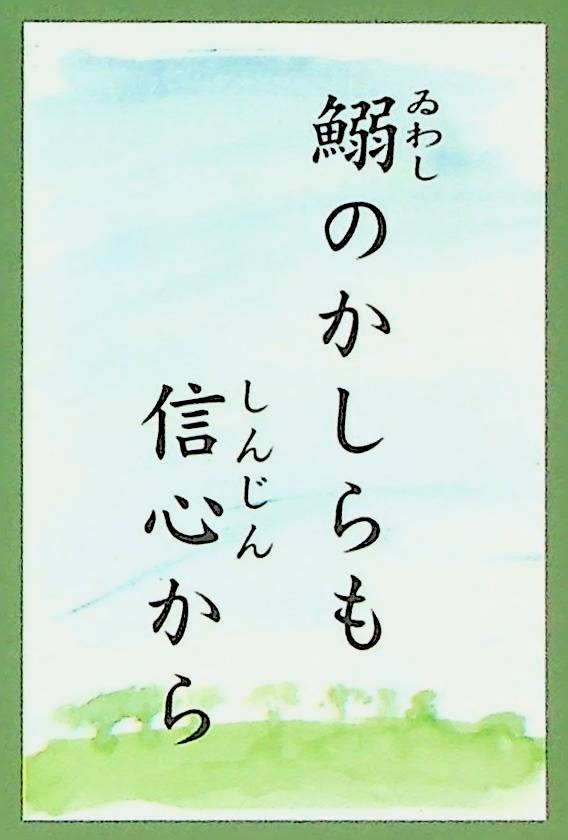 鰯のかしらも
ゐわし
信心から
しんじん